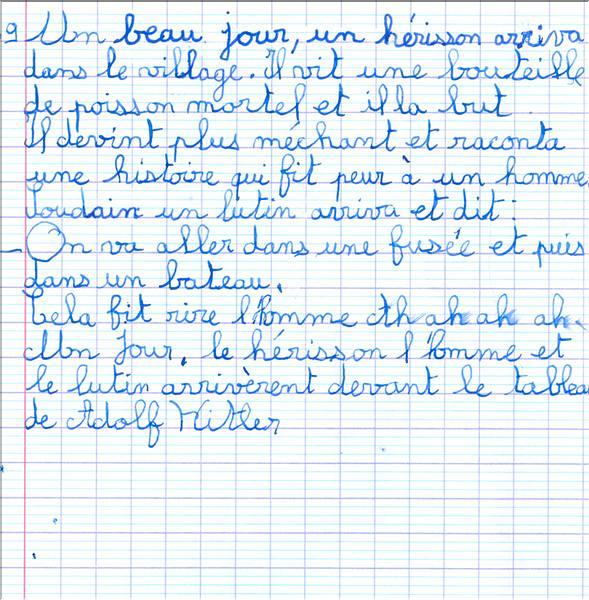 9 Un beau jour, un hérisson arriva
dans le village. Il vit une bouteille
de poisson mortel et il la but
Il devint plus méchant et raconta
une histoire qui fit peur à un homme.
Soudain un lutin arriva et dit :
– On va aller dans une fusée et puis
dans un bateau.
Cela fit rire l'homme Ah ah ah ah.
Un jour, le hérisson l'homme et
le lutin arrivèrent devant le tableau
de Adolf Hitler